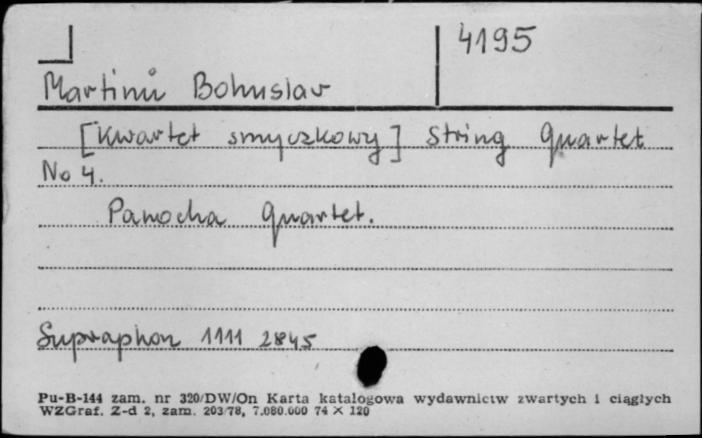 4195
Martinů Bohuslav
[Kwartet smyczkowy] String Quartet
No 4.
Panocha Quartet.
Supraphon 1111 2845
Pu-B-144 zam. nr 320/DW/On Karta katalogowa wydawnictw zwartych i ciągłych
WZGraf. Z-d 2, zam. 203/78, 7.080.000 74 × 120